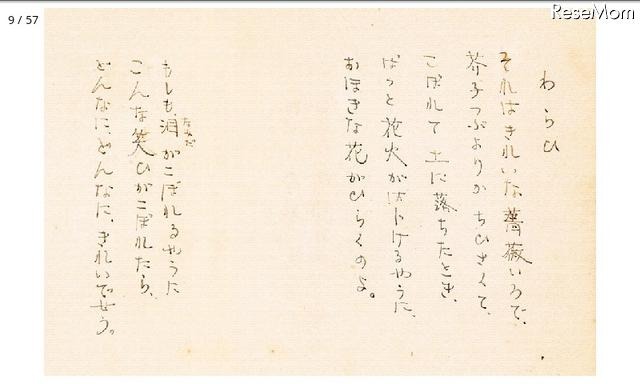 9 / 57
ReseMom
わらひ
それはきれいな薔薇いろで、
芥子つぶよりかちひさくて、
こぼれて土に落ちたとき、
ぱっと花火がはじけるやうに、
おほきな花がひらくのよ。
もしも泪がこぼれるやうに
なみだ
こんな笑ひがこぼれたら、
どんなに、どんなに、きれいでせう。